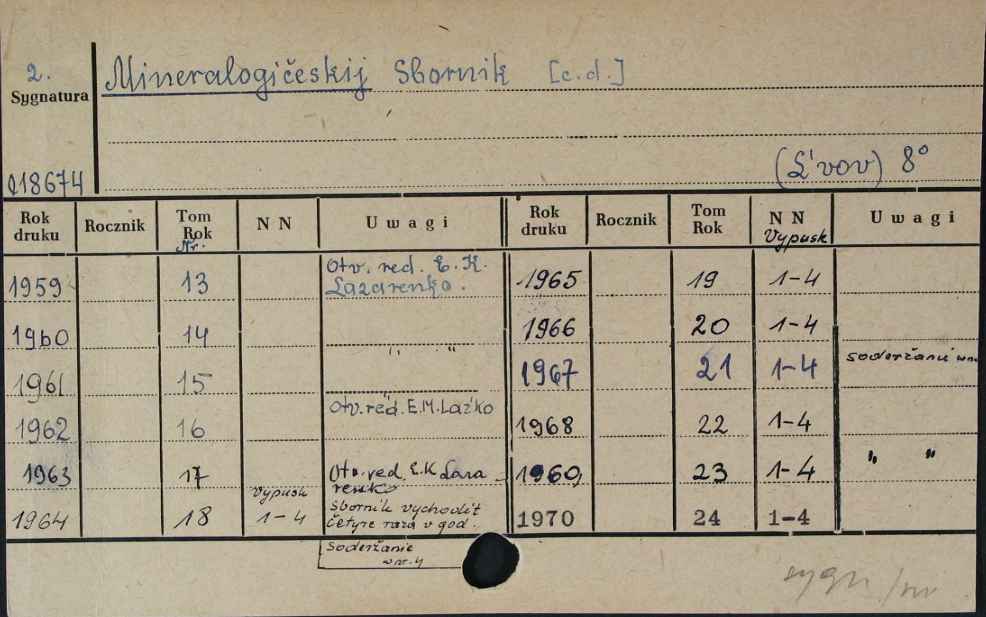 2. Mineralogičeskij Sbornik [c.d.]
Sygnatura
(L'vov) 8°
Q18674
Rok druku Rocznik Tom Rok NN Uwagi Rok druku Rocznik Tom Rok NN Uwagi
Nr. Vypusk
1959 13 Otv. red. E. K. Lazarenko. 1965 19 1-4
1960 14 1966 20 1-4
" "
1961 15 1967 21 1-4 soderžanie
1962 16 Otv. red. E.M. Laz'ko 1968 22 1-4
1963 17 Otv. red. E.K. Lazarenko 1969 23 1-4 " "
1964 18 Vypusk 1-4 Sbornik vychodit četyre raza v god. 1970 24 1-4
Soderžanie
w nr. 4
sygn